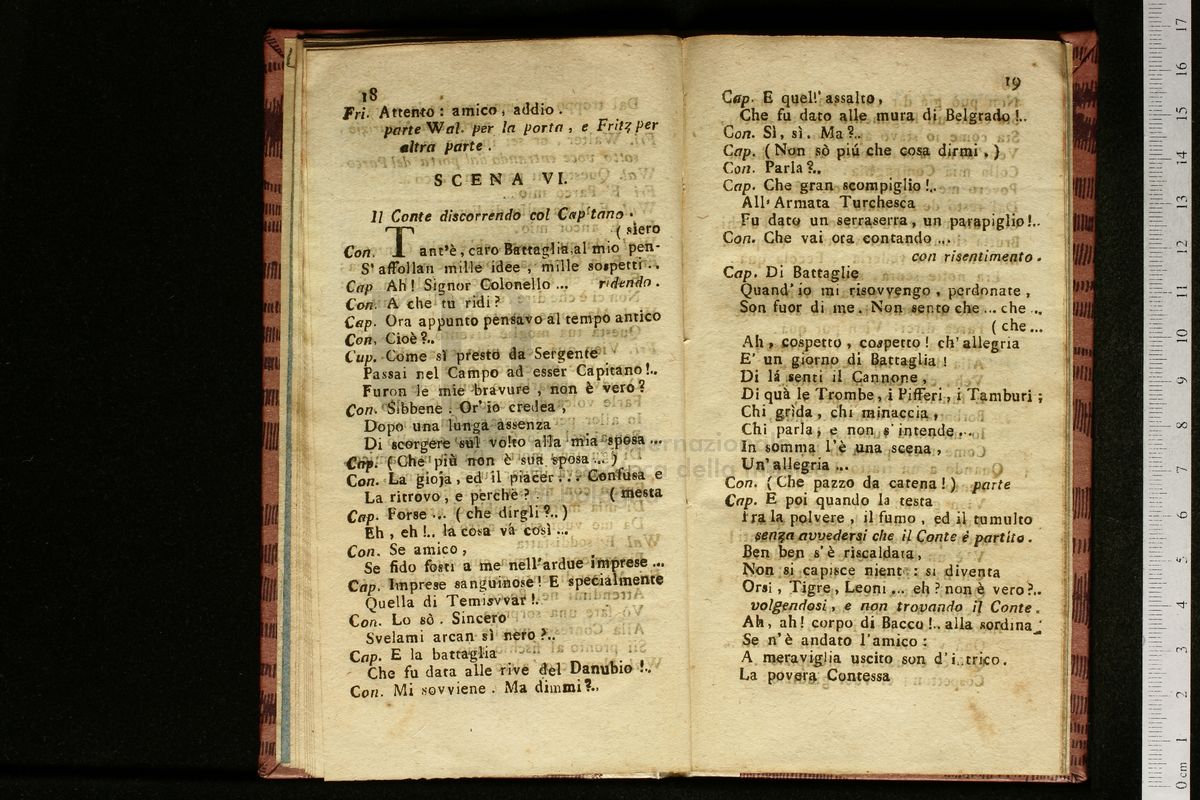 18
Fri. Attento : amico, addio.
parte Wal. per la porta, e Fritz per
altra parte.
SCENA VI.
Il Conte discorrendo col Capitano.
( siero
Con. Tant'è, caro Battaglia, al mio pen-
S'affollan mille idee, mille sospetti..
Cap Ah! Signor Colonello ... ridendo.
Con. A che tu ridi?
Cap. Ora appunto pensavo al tempo antico
Con. Cioè?..
Cap. Come sì presto da Sergente
Passai nel Campo ad esser Capitano!..
Furon le mie bravure, non è vero?
Con. Sibbene. Or'io credea,
Dopo una lunga assenza
Di scorgere sul volto alla mia sposa ...
Cap. (Che più non è sua sposa ...)
Con. La gioja, ed il piacer... Confusa e
La ritrovo, e perchè? ( mesta
Cap. Forse ... (che dirgli?..)
Eh, eh!.. la cosa và così ...
Con. Se amico,
Se fido fosti a me nell'ardue imprese ...
Cap. Imprese sanguinose! E specialmente
Quella di Temisvvar!..
Con. Lo sò. Sincero
Svelami arcan sì nero?..
Cap. E la battaglia
Che fu data alle rive del Danubio!..
Con. Mi sovviene. Ma dimmi?..
19
Cap. E quell' assalto,
Che fu dato alle mura di Belgrado!..
Con. Sì, sì. Ma?..
Cap. (Non sò piú che cosa dirmi.)
Con. Parla?..
Cap. Che gran scompiglio!..
All' Armata Turchesca
Fu dato un serraserra, un parapiglio!..
Con. Che vai ora contando ...
con risentimento.
Cap. Di Battaglie
Quand' io mi risovvengo, perdonate,
Son fuor di me. Non sento che ... che ..
( che ...
Ah, cospetto, cospetto! ch'allegria
E' un giorno di Battaglia!
Di lá senti il Cannone,
Di quà le Trombe, i Pifferi, i Tamburi;
Chi grida, chi minaccia,
Chi parla, e non s'intende...
In somma l'è una scena,
Un'allegria ...
Con. (Che pazzo da catena!) parte
Cap. E poi quando la testa
Fra la polvere, il fumo, ed il tumulto
senza avvedersi che il Conte è partito.
Ben ben s'è riscaldata,
Non si capisce niente : si diventa
Orsi, Tigre, Leoni ... eh? non è vero?..
volgendosi, e non trovando il Conte.
Ah, ah! corpo di Bacco!.. alla sordina
Se n'è andato l'amico :
A meraviglia uscito son d'intrico.
La povera Contessa